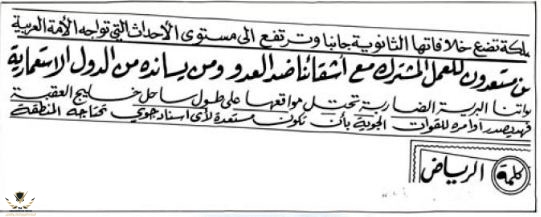 ملكة تضع خلافاتها الثانوية جانبا وترتفع الى مستوى الأحداث التي تواجه الأمة العربية
مستعدون للعمل المشترك مع أشقائنا ضد العدو ومن يسانده من الدول الاستعمارية
واتنا البرية الضاربة تحتل مواقعها على طول ساحل خليج العقبة
فهد يصدر أوامره للقوات الجوية بأن تكون مستعدة لأى اسناد جوي تحتاجه المنطقة
كلمة الرياض